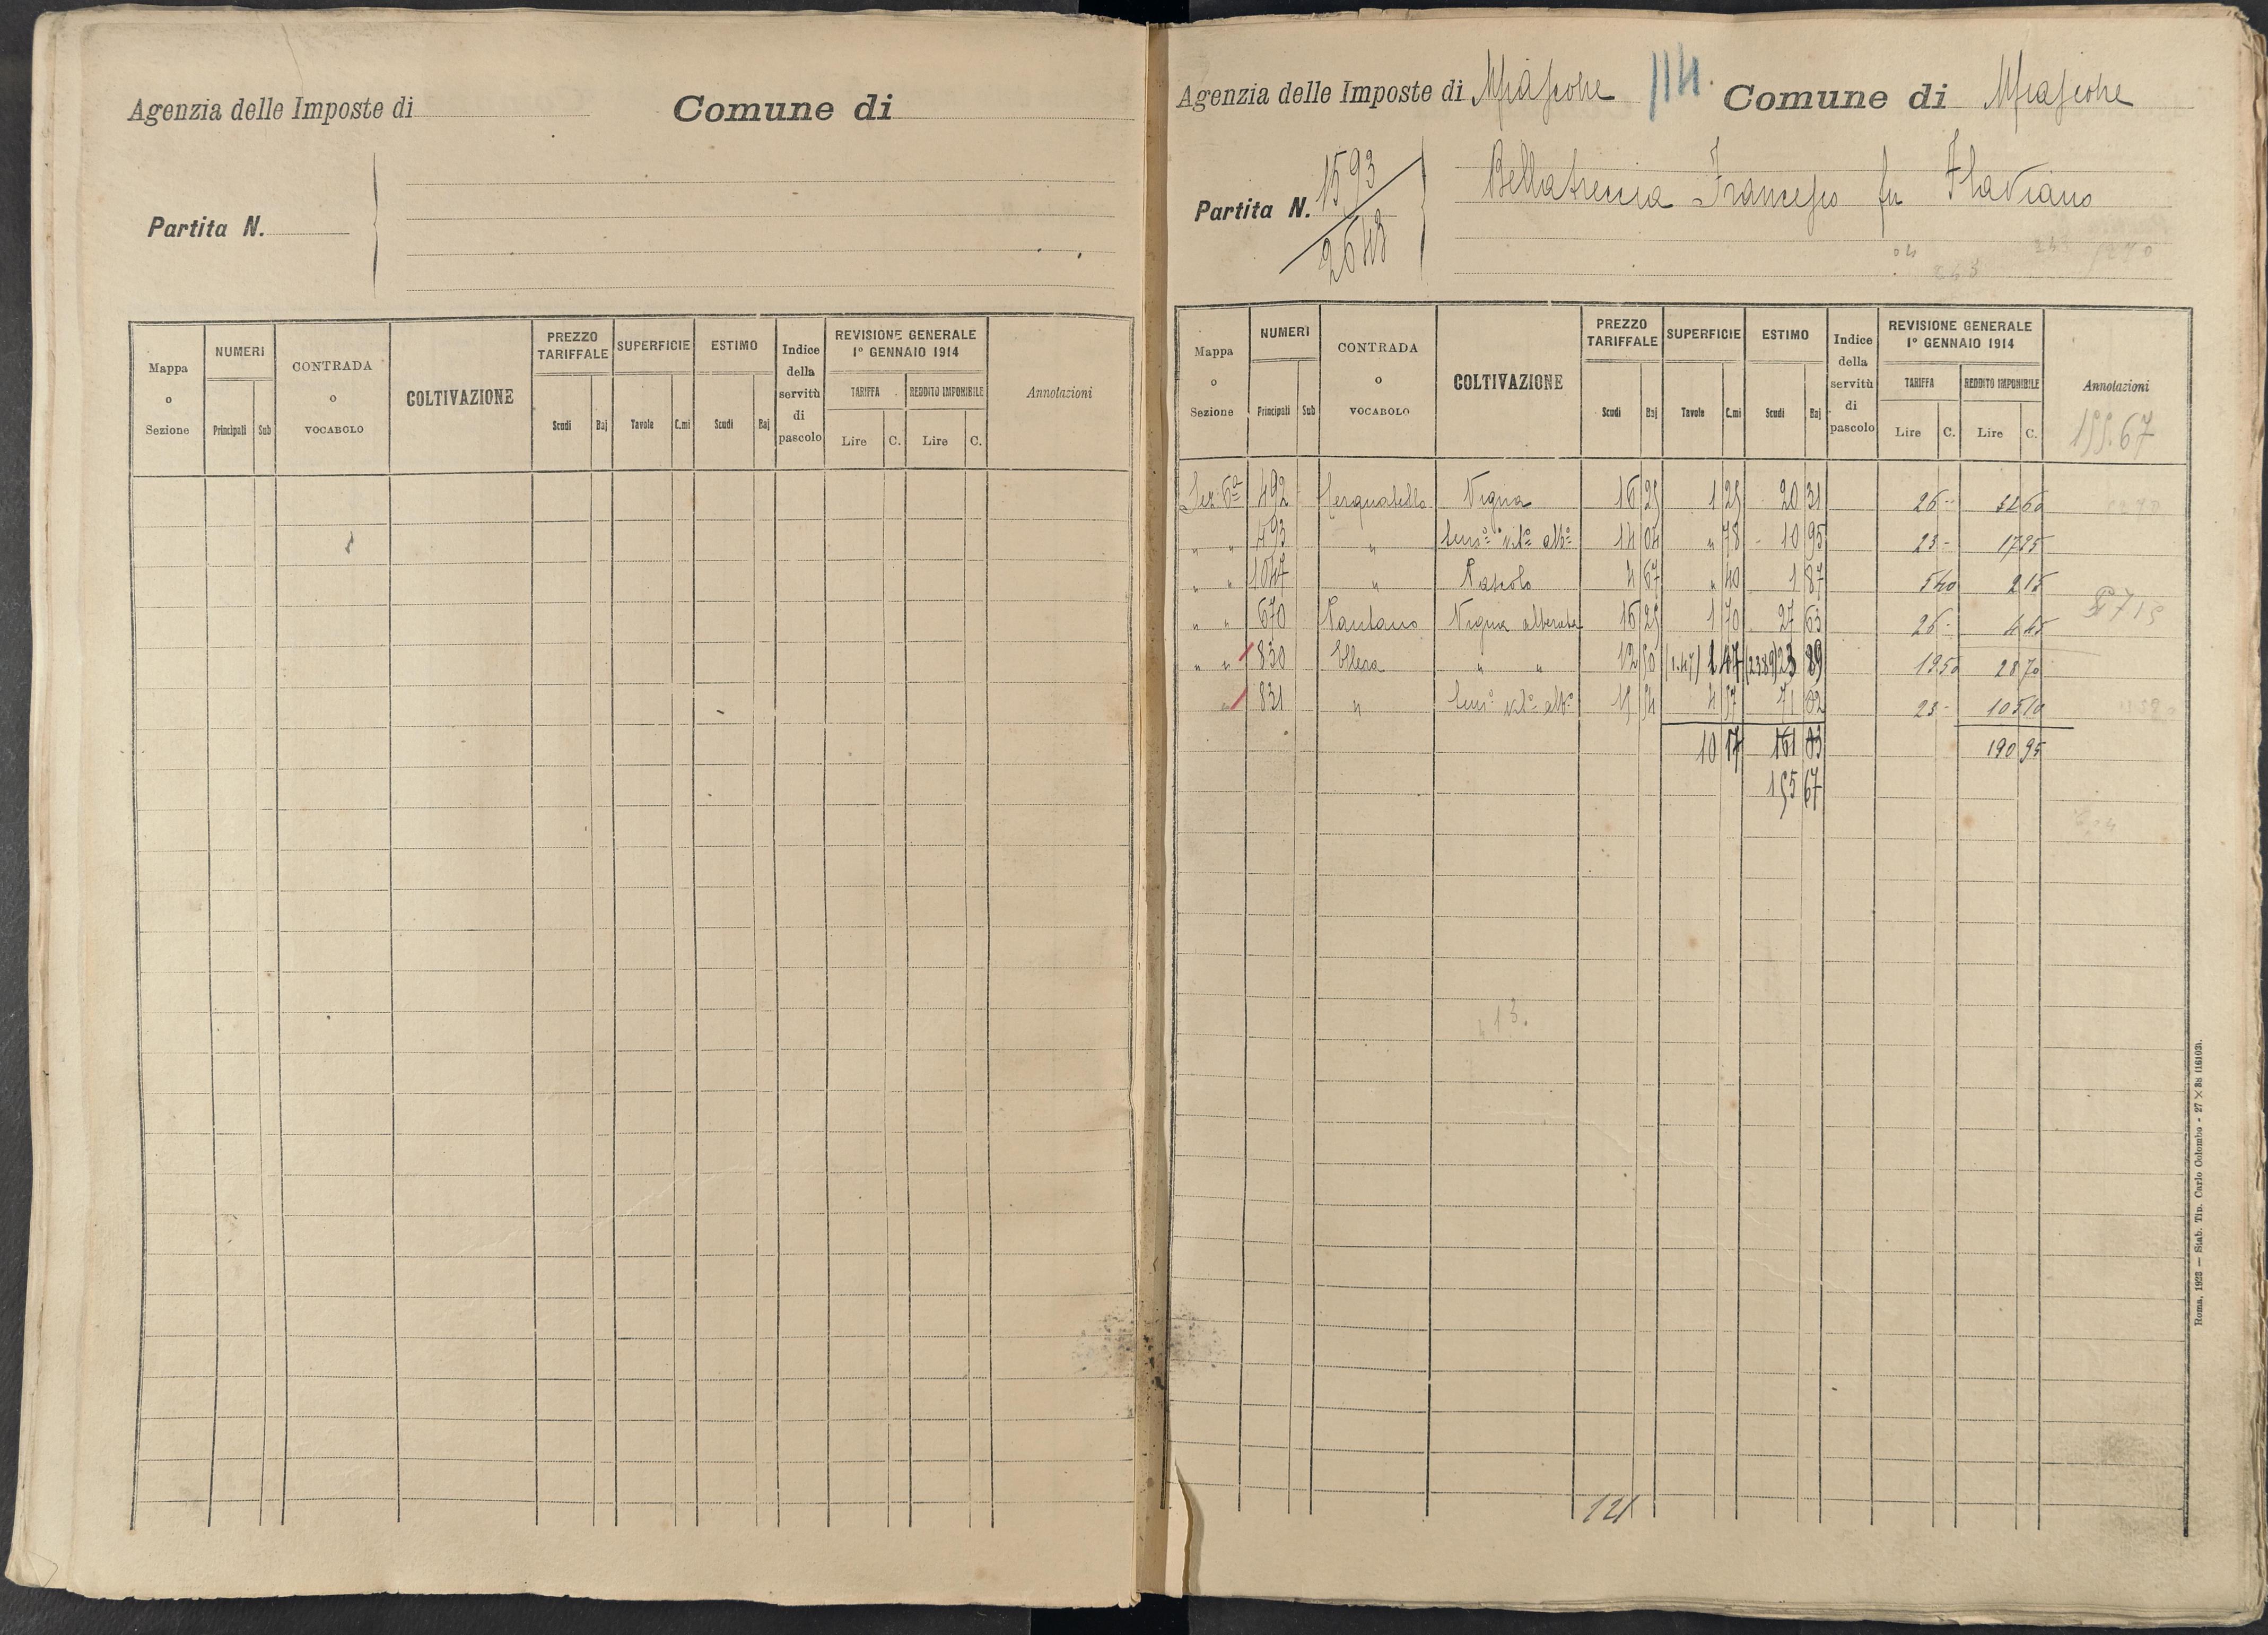 Agenzia delle Imposte di
Comune di
Partita N.
Mappa o Sezione
NUMERI
Principali
Sub
CONTRADA o VOCABOLO
COLTIVAZIONE
PREZZO TARIFFALE
Scudi
Baj
SUPERFICIE
Tavole
C.mi
ESTIMO
Scudi
Baj
Indice della servitù di pascolo
REVISIONE GENERALE
1° GENNAIO 1914
TARIFFA
Lire
C.
REDDITO IMPONIBILE
Lire
C.
Annotazioni
Agenzia delle Imposte di
114.
Comune di
Partita N. 1593
2648
Bellatreccia Francesco fu Flaviano
Mappa o Sezione
NUMERI
Principali
Sub
CONTRADA o VOCABOLO
COLTIVAZIONE
PREZZO TARIFFALE
Scudi
Baj
SUPERFICIE
Tavole
C.mi
ESTIMO
Scudi
Baj
Indice della servitù di pascolo
REVISIONE GENERALE
1° GENNAIO 1914
TARIFFA
Lire
C.
REDDITO IMPONIBILE
Lire
C.
Annotazioni
155.67
Sez. 6ª 492 Cerquatello Vigna 16 25 1 25 20 31 26 -
" " 493 " Sem.° vit.° alb.° 14 04 " 78 10 95 23 - 17 95
" " 1047 " Pascolo 4 67 " 40 1 87 5 40 2 15
" " 670 Pantano Vigna alberata 16 25 1 70 27 63 26 -
" " 830 Ellera " " (1.47) 1 47 (23.89) 23 89 19 50 28 70
" 831 " Sem.° vit.° alb.° 15 54 4 57 71 02 23 - 105 10
10 17 161 03 190 95
155 67
121
Roma, 1923 — Stab. Tip. Carlo Colombo - 27 × 38 (16103).